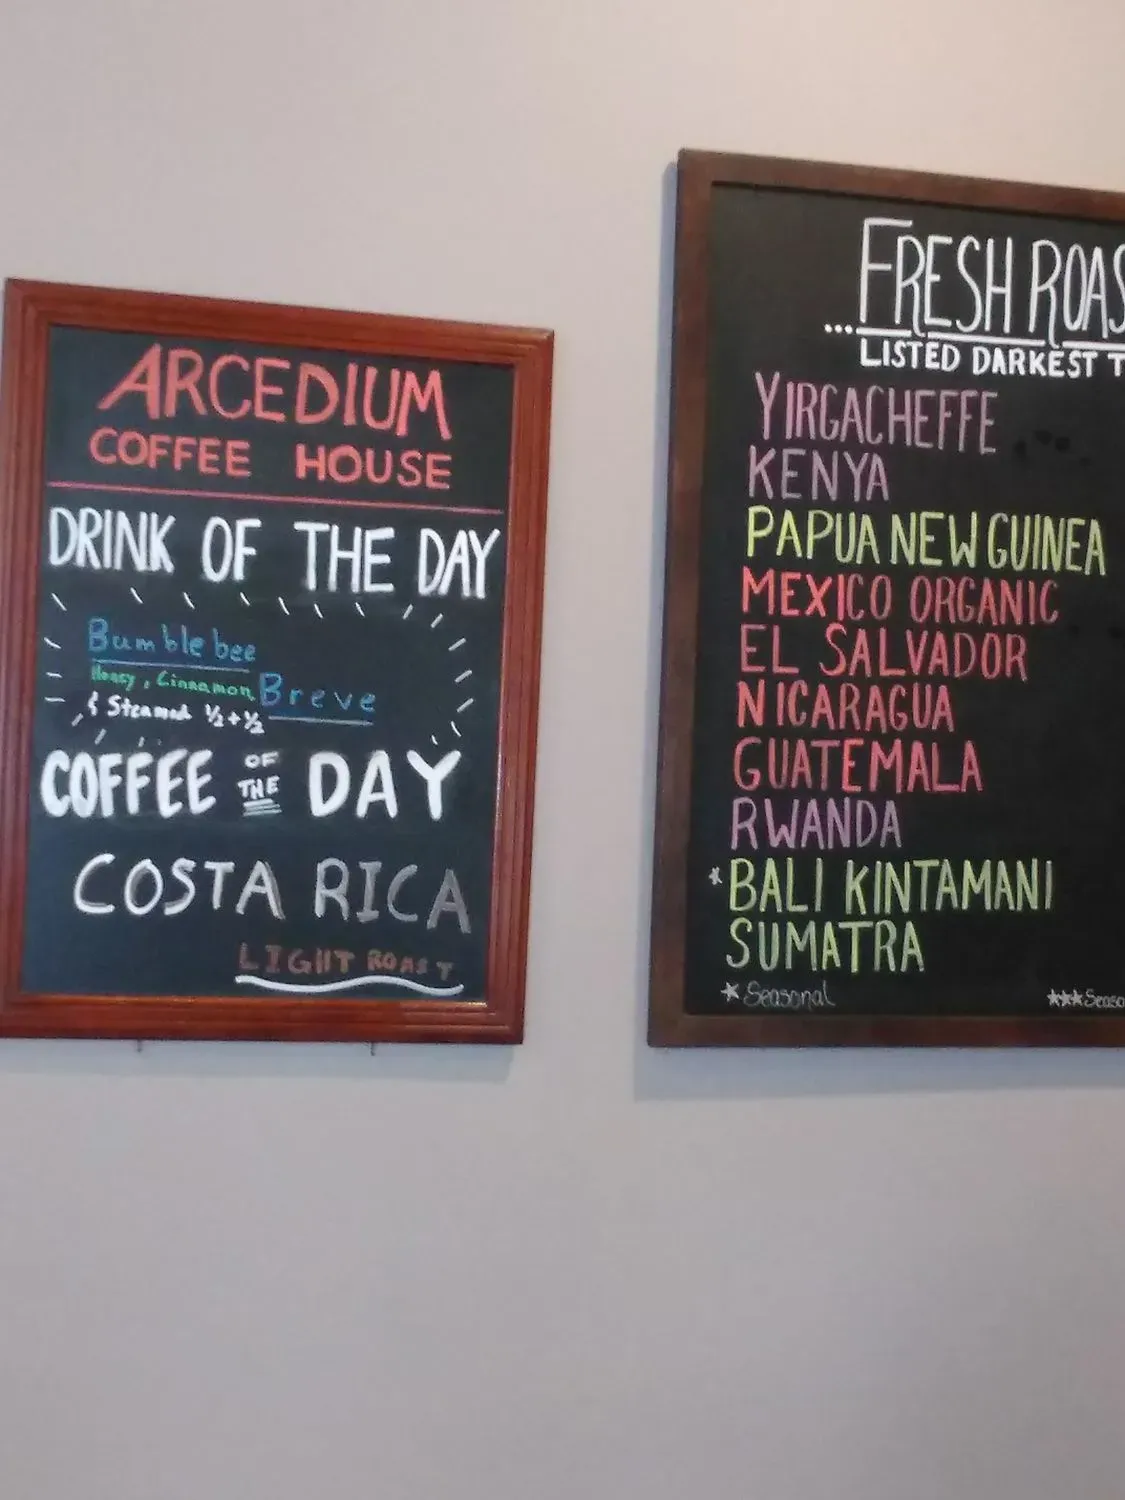 ARCEDIUM
COFFEE HOUSE
DRINK OF THE DAY
Bumblebee
Honey, Cinnamon Breve
& Steamed ½+½
COFFEE OF THE DAY
COSTA RICA
LIGHT ROAST
...FRESH ROAS
LISTED DARKEST T
YIRGACHEFFE
KENYA
PAPUA NEW GUINEA
MEXICO ORGANIC
EL SALVADOR
NICARAGUA
GUATEMALA
RWANDA
*BALI KINTAMANI
SUMATRA
*Seasonal ***Seaso